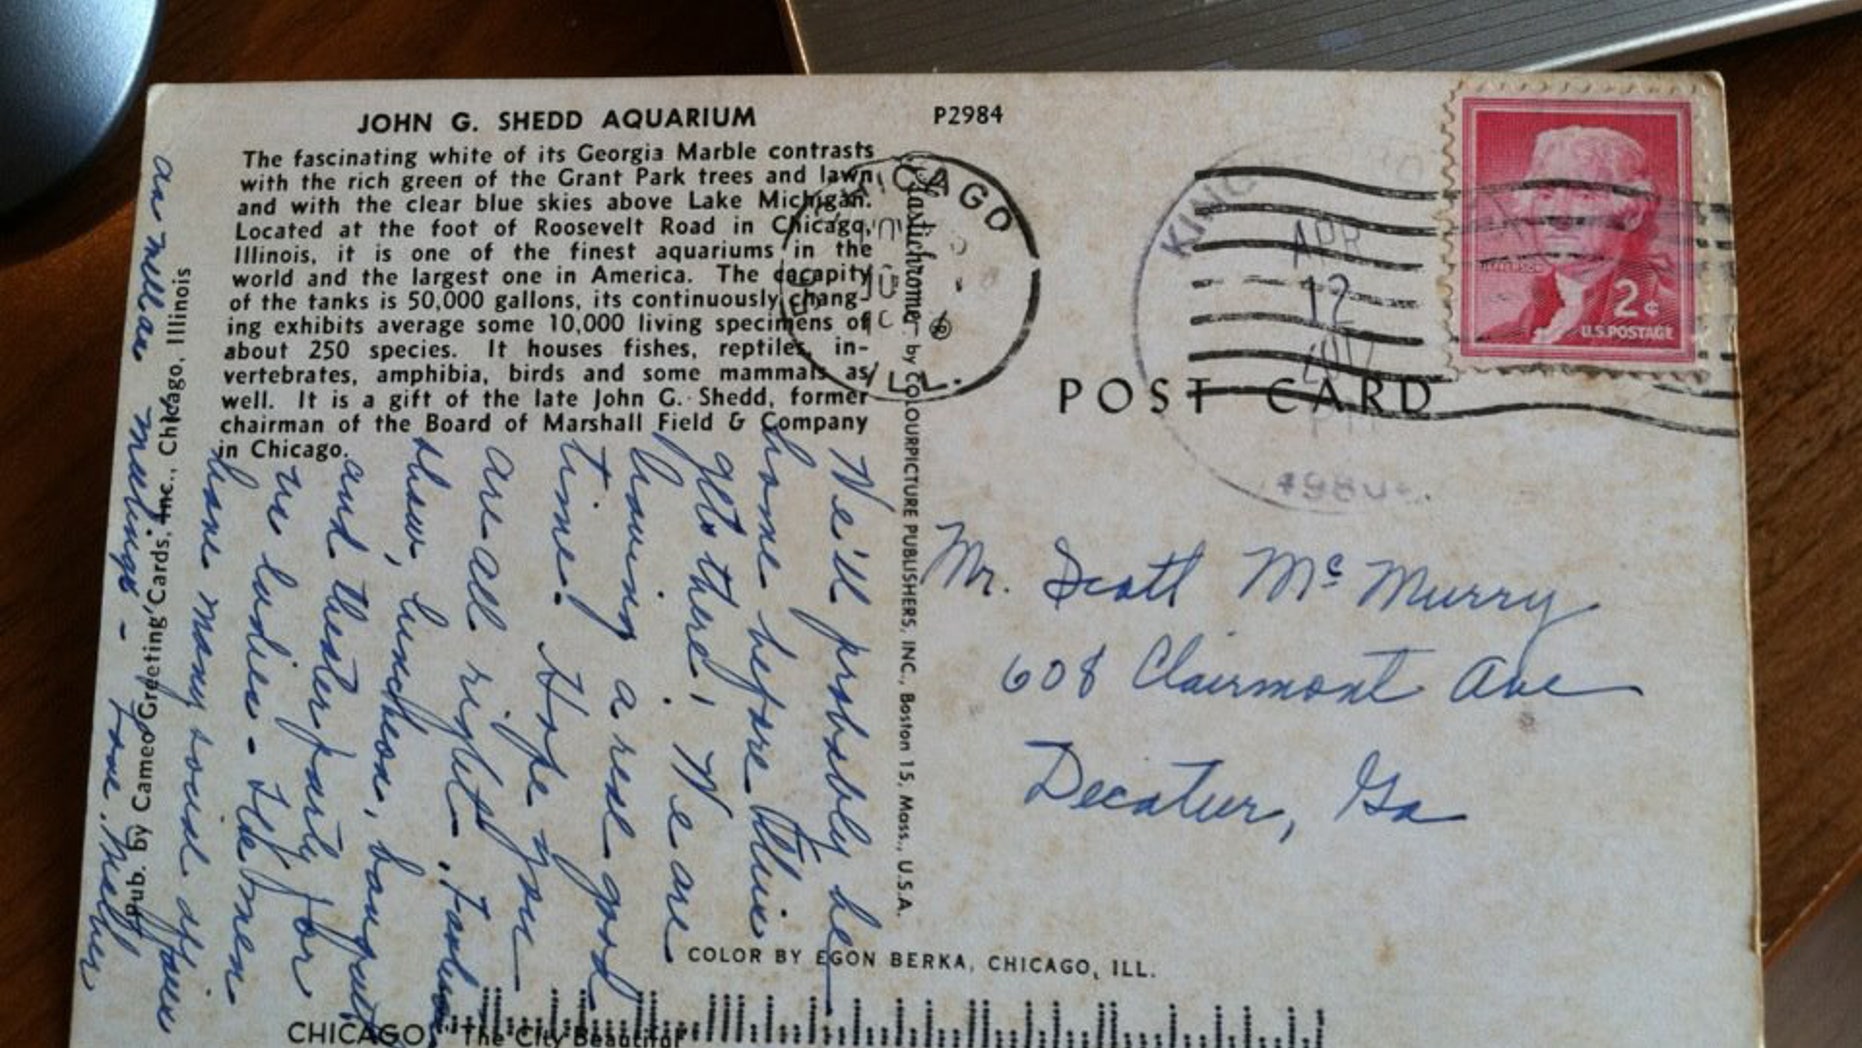 JOHN G. SHEDD AQUARIUM
P2984
The fascinating white of its Georgia Marble contrasts
with the rich green of the Grant Park trees and lawn,
and with the clear blue skies above Lake Michigan.
Located at the foot of Roosevelt Road in Chicago,
Illinois, it is one of the finest aquariums in the
world and the largest one in America. The cacapity
of the tanks is 50,000 gallons, its continuously chang-
ing exhibits average some 10,000 living specimens of
about 250 species. It houses fishes, reptiles, in-
vertebrates, amphibia, birds and some mammals as
well. It is a gift of the late John G. Shedd, former
chairman of the Board of Marshall Field & Company
in Chicago.
We'll probably be
home before this
gets there! We are
having a real good
time! Hope you
are all right. Fashion
show, luncheon, banquet
and theater party for
we ladies - The men
have many social affairs
as well as meetings - Love, Mother
Pub. by Cameo Greeting Cards, Inc., Chicago, Illinois
Plastichrome by COLOURPICTURE PUBLISHERS, INC., Boston 15, Mass., U.S.A.
ILL.
KING
APR
12
PM
2¢
U.S. POSTAGE
POST CARD
Mr. Scott McMurry
608 Clairmont Ave
Decatur, Ga
COLOR BY EGON BERKA, CHICAGO, ILL.
CHICAGO, "The City Beautiful"